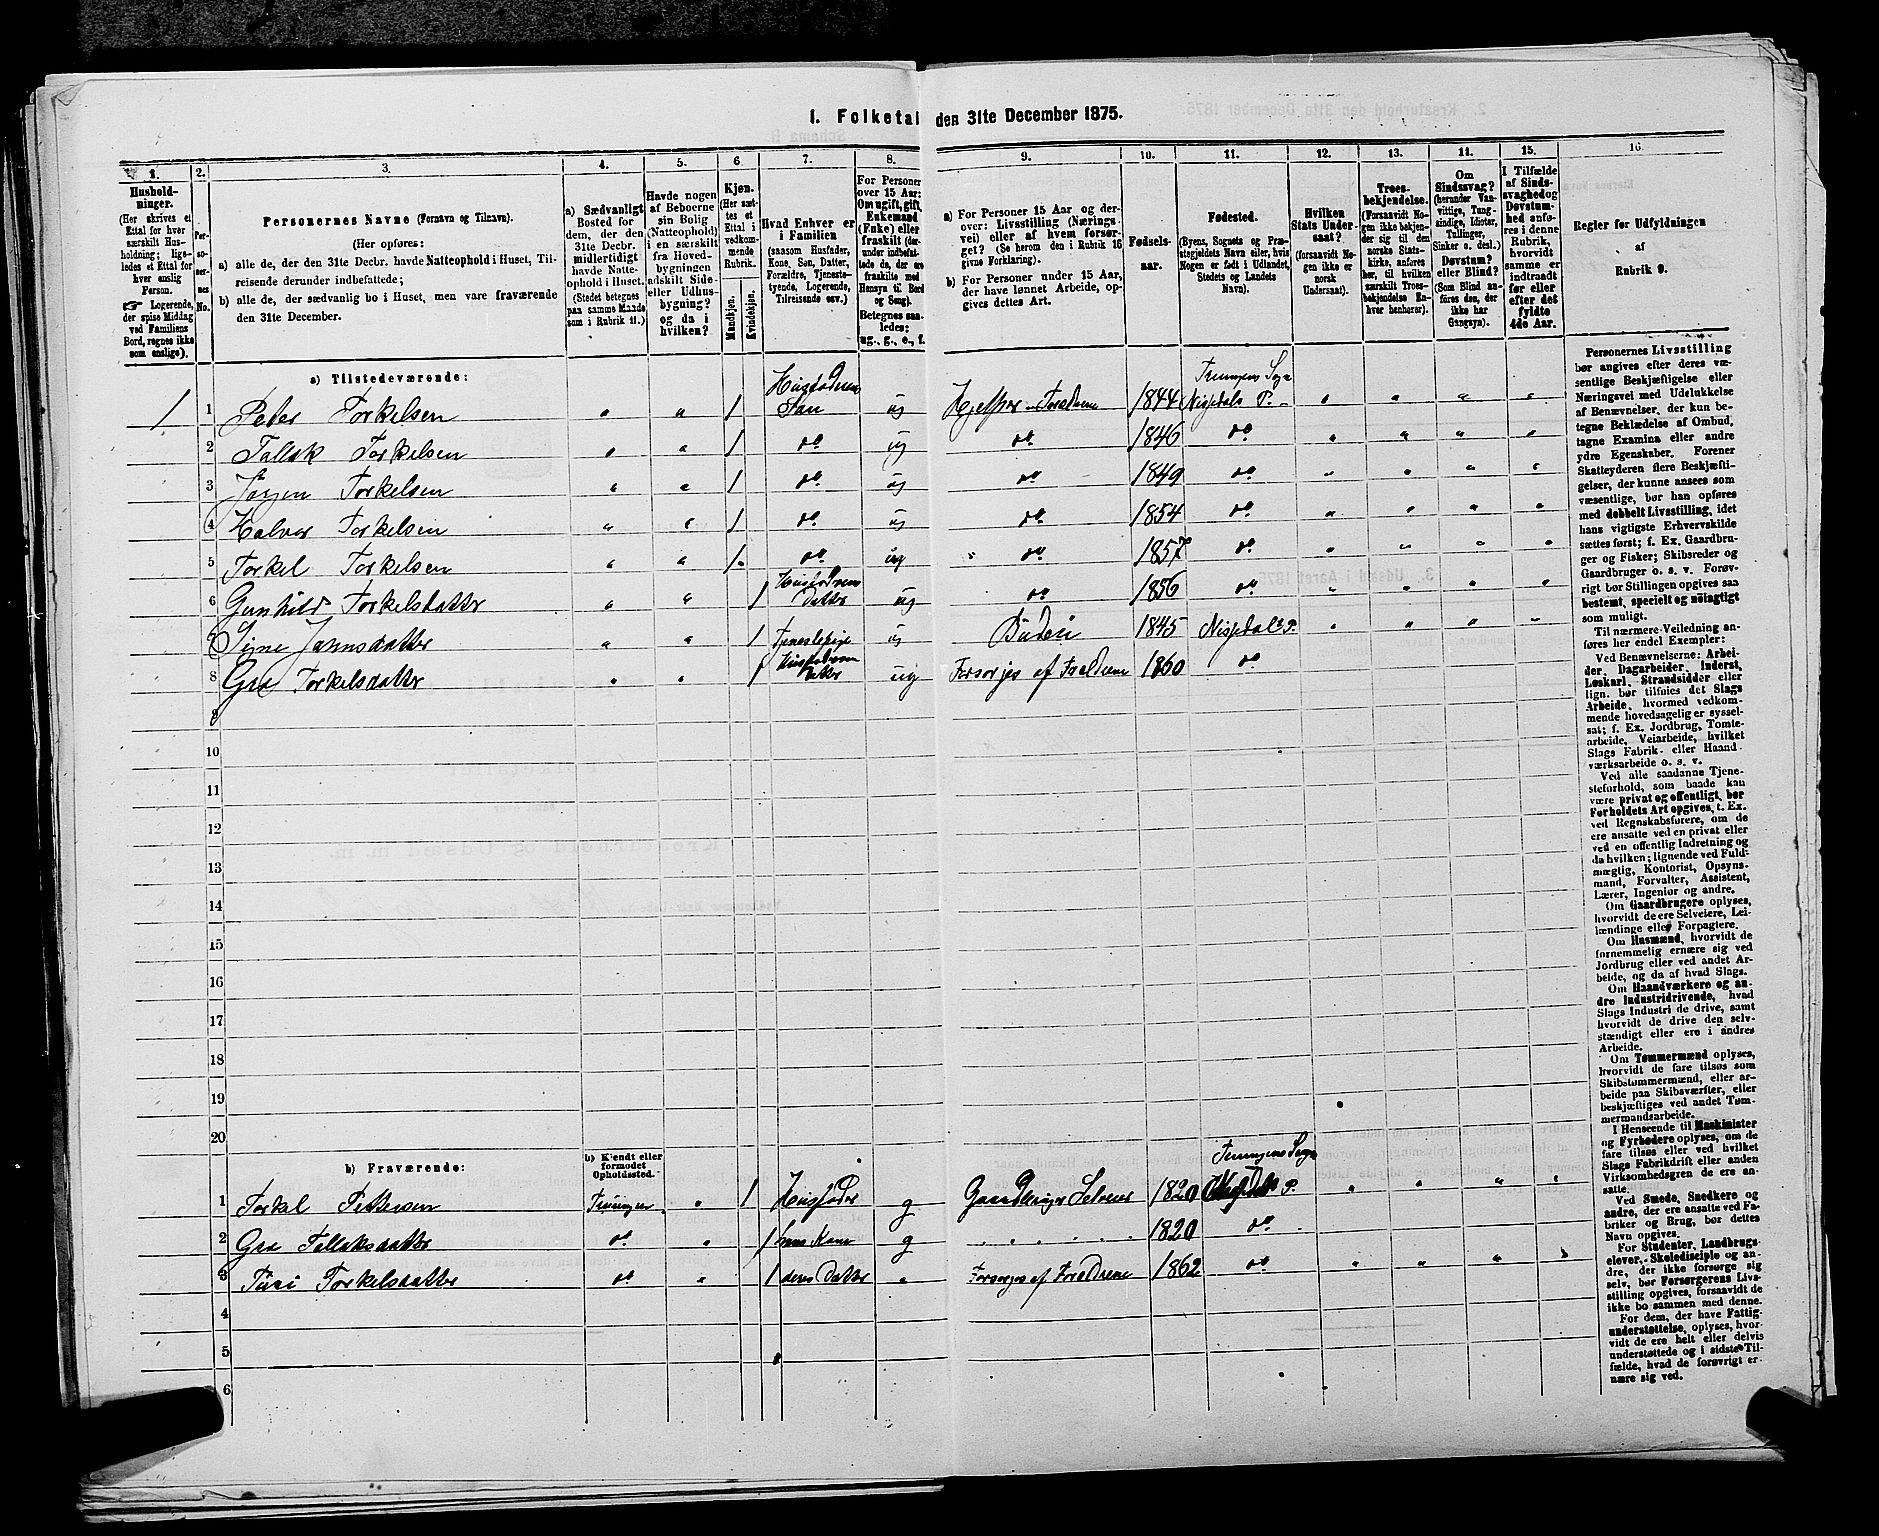 1. Folketal den 31te December 1875.
1. 2. 3. 4. 5. 6. 7. 8. 9. 10. 11. 12. 13. 14. 15. 16.
Hushold-
ninger.
(Her skrives et
Ettal for hver
særskilt Hus-
holdning; lige-
ledes et Ettal for
hver enslig
Person.
☞ Logerende,
der spise Middag
ved Familiens
Bord, regnes ikke
som enslige).
Per-
soner-
nes
No.
Personernes Navne (Fornavn og Tilnavn).
(Her opføres:
a) alle de, der den 31te Decbr. havde Natteophold i Huset, Til-
reisende derunder indbefattede;
b) alle de, der sædvanlig bo i Huset, men vare fraværende
den 31te December.
a) Sædvanligt
Bosted for
dem, der den
31te Decbr.
midlertidigt
havde Natte-
ophold i Huset.
(Stedet betegnes
paa samme Maade
som i Rubrik 11.)
Havde nogen
af Beboerne
sin Bolig
(Natteophold)
i en særskilt
fra Hoved-
bygningen
adskilt Side-
eller Udhus-
bygning?
og da i
hvilken?
Kjøn.
(Her sæt-
tes et
Ettal i
vedkom-
mende
Rubrik.
Mandkjøn.
Kvindekjøn.
Hvad Enhver er
i Familien
(saasom Husfader,
Kone, Søn, Datter,
Forældre, Tjeneste-
tyende, Logerende,
Tilreisende osv.)
For Personer
over 15 Aar:
Om ugift, gift,
Enkemand
(Enke) eller
fraskilt (der-
under indbefat-
tede de, der ere
fraskilte med
Hensyn til Bord
og Seng).
Betegnes saa-
ledes:
ug., g., e., f.
a) For Personer 15 Aar og der-
over: Livsstilling (Nærings-
vei) eller af hvem forsør-
get? (Se herom den i Rubrik 16
givne Forklaring).
b) For Personer under 15 Aar,
der have lønnet Arbeide, op-
gives dettes Art.
Fødsels-
aar.
Fødested.
(Byens, Sognets og Præ-
stegjeldets Navn eller, hvis
Nogen er født i Udlandet,
Stedets og Landets
Navn).
Hvilken
Stats Under-
saat?
(forsaavidt No-
gen ikke er
norsk
Undersaat).
Troes-
bekjendelse.
(Forsaavidt No-
gen ikke bekjen-
der sig til den
norske Stats-
kirke, anføres
her, til hvilken
særskilte Troes-
bekjendelse En-
hver henhører).
Om
Sindssvag?
(herunder Van-
vittige, Tung-
sindige, Idioter,
Tullinger,
Sinker o. desl.)
Døvstum?
eller Blind?
(Som Blind an-
føres den, der
ikke har
Gangsyn).
I Tilfælde
af Sinds-
svaghed og
Døvstum-
hed anfø-
res i denne
Rubrik,
hvorvidt
samme er
indtraadt
før eller
efter det
fyldte
4de Aar.
Regler for Udfyldningen
af
Rubrik 9.
a) Tilstedeværende:
1 1 Peter Torkelsen " " 1 Husfaderens Søn ug Hjelper Forældrene 1844 Treungens Sogn Nissedals P. " " " "
2 Tallak Torkelsen " " 1 do ug do 1846 do " " " "
3 Jørgen Torkelsen " " 1 do ug do 1849 do " " " "
4 Halvor Torkelsen " " 1 do ug do 1854 do " " " "
5 Torkel Torkelsen " " 1 do ug do 1857 do " " " "
6 Gunhild Torkelsdatter " " 1 Husfaderens Datter ug do 1856 do " " " "
7 Signe Jørensdatter " " 1 Tjenestepige ug Budeie 1845 Nissedals P. " " " "
8 Gro Torkelsdatter " " 1 Husfaderen Datter ug Forsørges af Forældrene 1860 do
9
10
11
12
13
14
15
16
17
18
19
20
b) Fraværende:
b) Kjendt eller
formodet
Opholdssted.
1 Torkel Pettersen Treungen " 1 Husfader g Gaardbruger Selveier 1820 Treungens Sogn Nissedals P. " " " "
2 Gro Tallaksdatter do " 1 hans Kone g " " " " " 1820 do
3 Turi Torkelsdatter do " 1 deres Datter " Forsørges af Forældrene 1862 do " " " "
4
5
6
Personernes Livsstilling
bør angives efter deres væ-
sentlige Beskjæftigelse eller
Næringsvei med Udelukkelse
af Benævnelser, der kun be-
tegne Beklædelse af Ombud,
tagne Examina eller andre
ydre Egenskaber. Forener
Skatteyderen flere Beskjæfti-
gelser, der kunne ansees som
væsentlige, bør han opføres
med dobbelt Livsstilling, idet
hans vigtigste Erhvervskilde
sættes først; f. Ex. Gaardbru-
ger og Fisker; Skibsreder og
Gaardbruger o. s. v. Forøv-
rigt bør Stillingen opgives saa
bestemt, specielt og nöiagtigt
som muligt.
Til nærmere Veiledning an-
føres her endel Exempler:
Ved Benævnelserne: Arbei-
der, Dagarbeider, Inderst,
Løskarl, Strandsidder eller
lign. bør tilføies det Slags
Arbeide, hvormed vedkom-
mende hovedsagelig er syssel-
sat; f. Ex. Jordbrug, Tomte-
arbeide, Veiarbeide, hvilket
Slags Fabrik- eller Haand-
værksarbeide o. s. v.
Ved alle saadanne Tjene-
steforhold, som baade kan
være privat og offentligt, bør
Forholdets Art opgives, t. Ex.
ved Regnskabsførere, om de
ere ansatte ved en privat eller
ved en offentlig Indretning og
da hvilken; lignende ved Fuld-
mægtig, Kontorist, Opsyns-
mand, Forvalter, Assistent,
Lærer, Ingeniør og andre.
Om Gaardbrugere oplyses,
hvorvidt de ere Selveiere, Lei-
lændinge eller Forpagtere.
Om Husmænd, hvorvidt de
fornemmelig ernære sig ved
Jordbrug eller ved andet Ar-
beide, og da af hvad Slags.
Om Haandværkere og an-
dre Industridrivende, hvad
Slags Industri de drive, samt
hvorvidt de drive den selv-
stændigt eller ere i andres
Arbeide.
Om Tømmermænd oplyses,
hvorvidt de fare tilsøs som
Skibstømmermænd, eller ar-
beide paa Skibsværfter, eller
beskjæftiges ved andet Tøm-
mermandsarbeide.
I Henseende til Maskinister
og Fyrbødere oplyses, om de
fare tilsøs eller ved hvilket
Slags Fabrikdrift eller anden
Virksomhedsgren de ere an-
satte.
Ved Smede, Snedkere og
andre, der ere ansatte ved Fa-
briker og Brug, bør dettes
Navn opgives.
For Studenter, Landbrugs-
elever, Skoledisciple og an-
dre, der ikke forsørge sig
selv, bør Forsørgerens Livs-
stilling opgives, forsaavidt de
ikke bo sammen med denne.
For dem, der have Fattig-
understøttelse, oplyses, hvor-
vidt de ere helt eller delvis
understøttede og i sidste Til-
fælde, hvad de forøvrigt er-
nære sig ved.